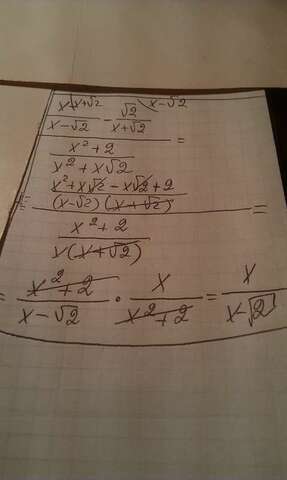 x\x+√2 √2 \x-√2
x-√2 - x+√2 =
x²+2
x²+x√2
= x²+x√2-x√2+2
(x-√2)(x+√2) =
x²+2
x(x+√2)
= x²+2 · x = x
x-√2 x²+2 x-√2